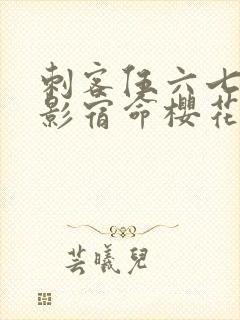 刺客伍六七
影宿命樱花
芸曦儿